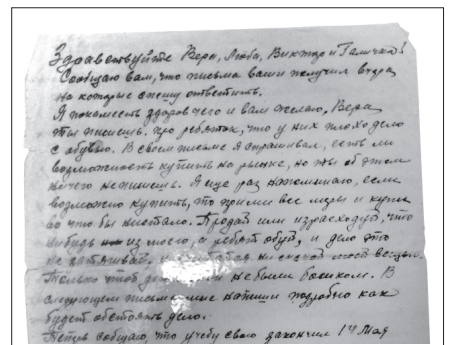 Здравствуйте Вера, Люба, Виктор и Галичка!
Сообщаю вам, что письма ваши получил вчера,
на которые спешу ответить.
Я покамест здоров чего и вам желаю, Вера
ты пишешь про ребяток, что у них плохо дело
с обувью. В своем письме я спрашивал, есть ли
возможность купить на рынке, но ты об этом
ничего не пишешь. Я еще раз напоминаю, если
возможно купить, то прими все меры и купи
во что бы нистало. Продай или израсходуй, что
нибудь из моего, а ребят обуй, и дело это
не затягивай,
Только чтоб не были босиком. В
следующем письме мне напиши подробно как
будет обстоять дело.
Теперь сообщаю, что учебу свою закончил 14 мая